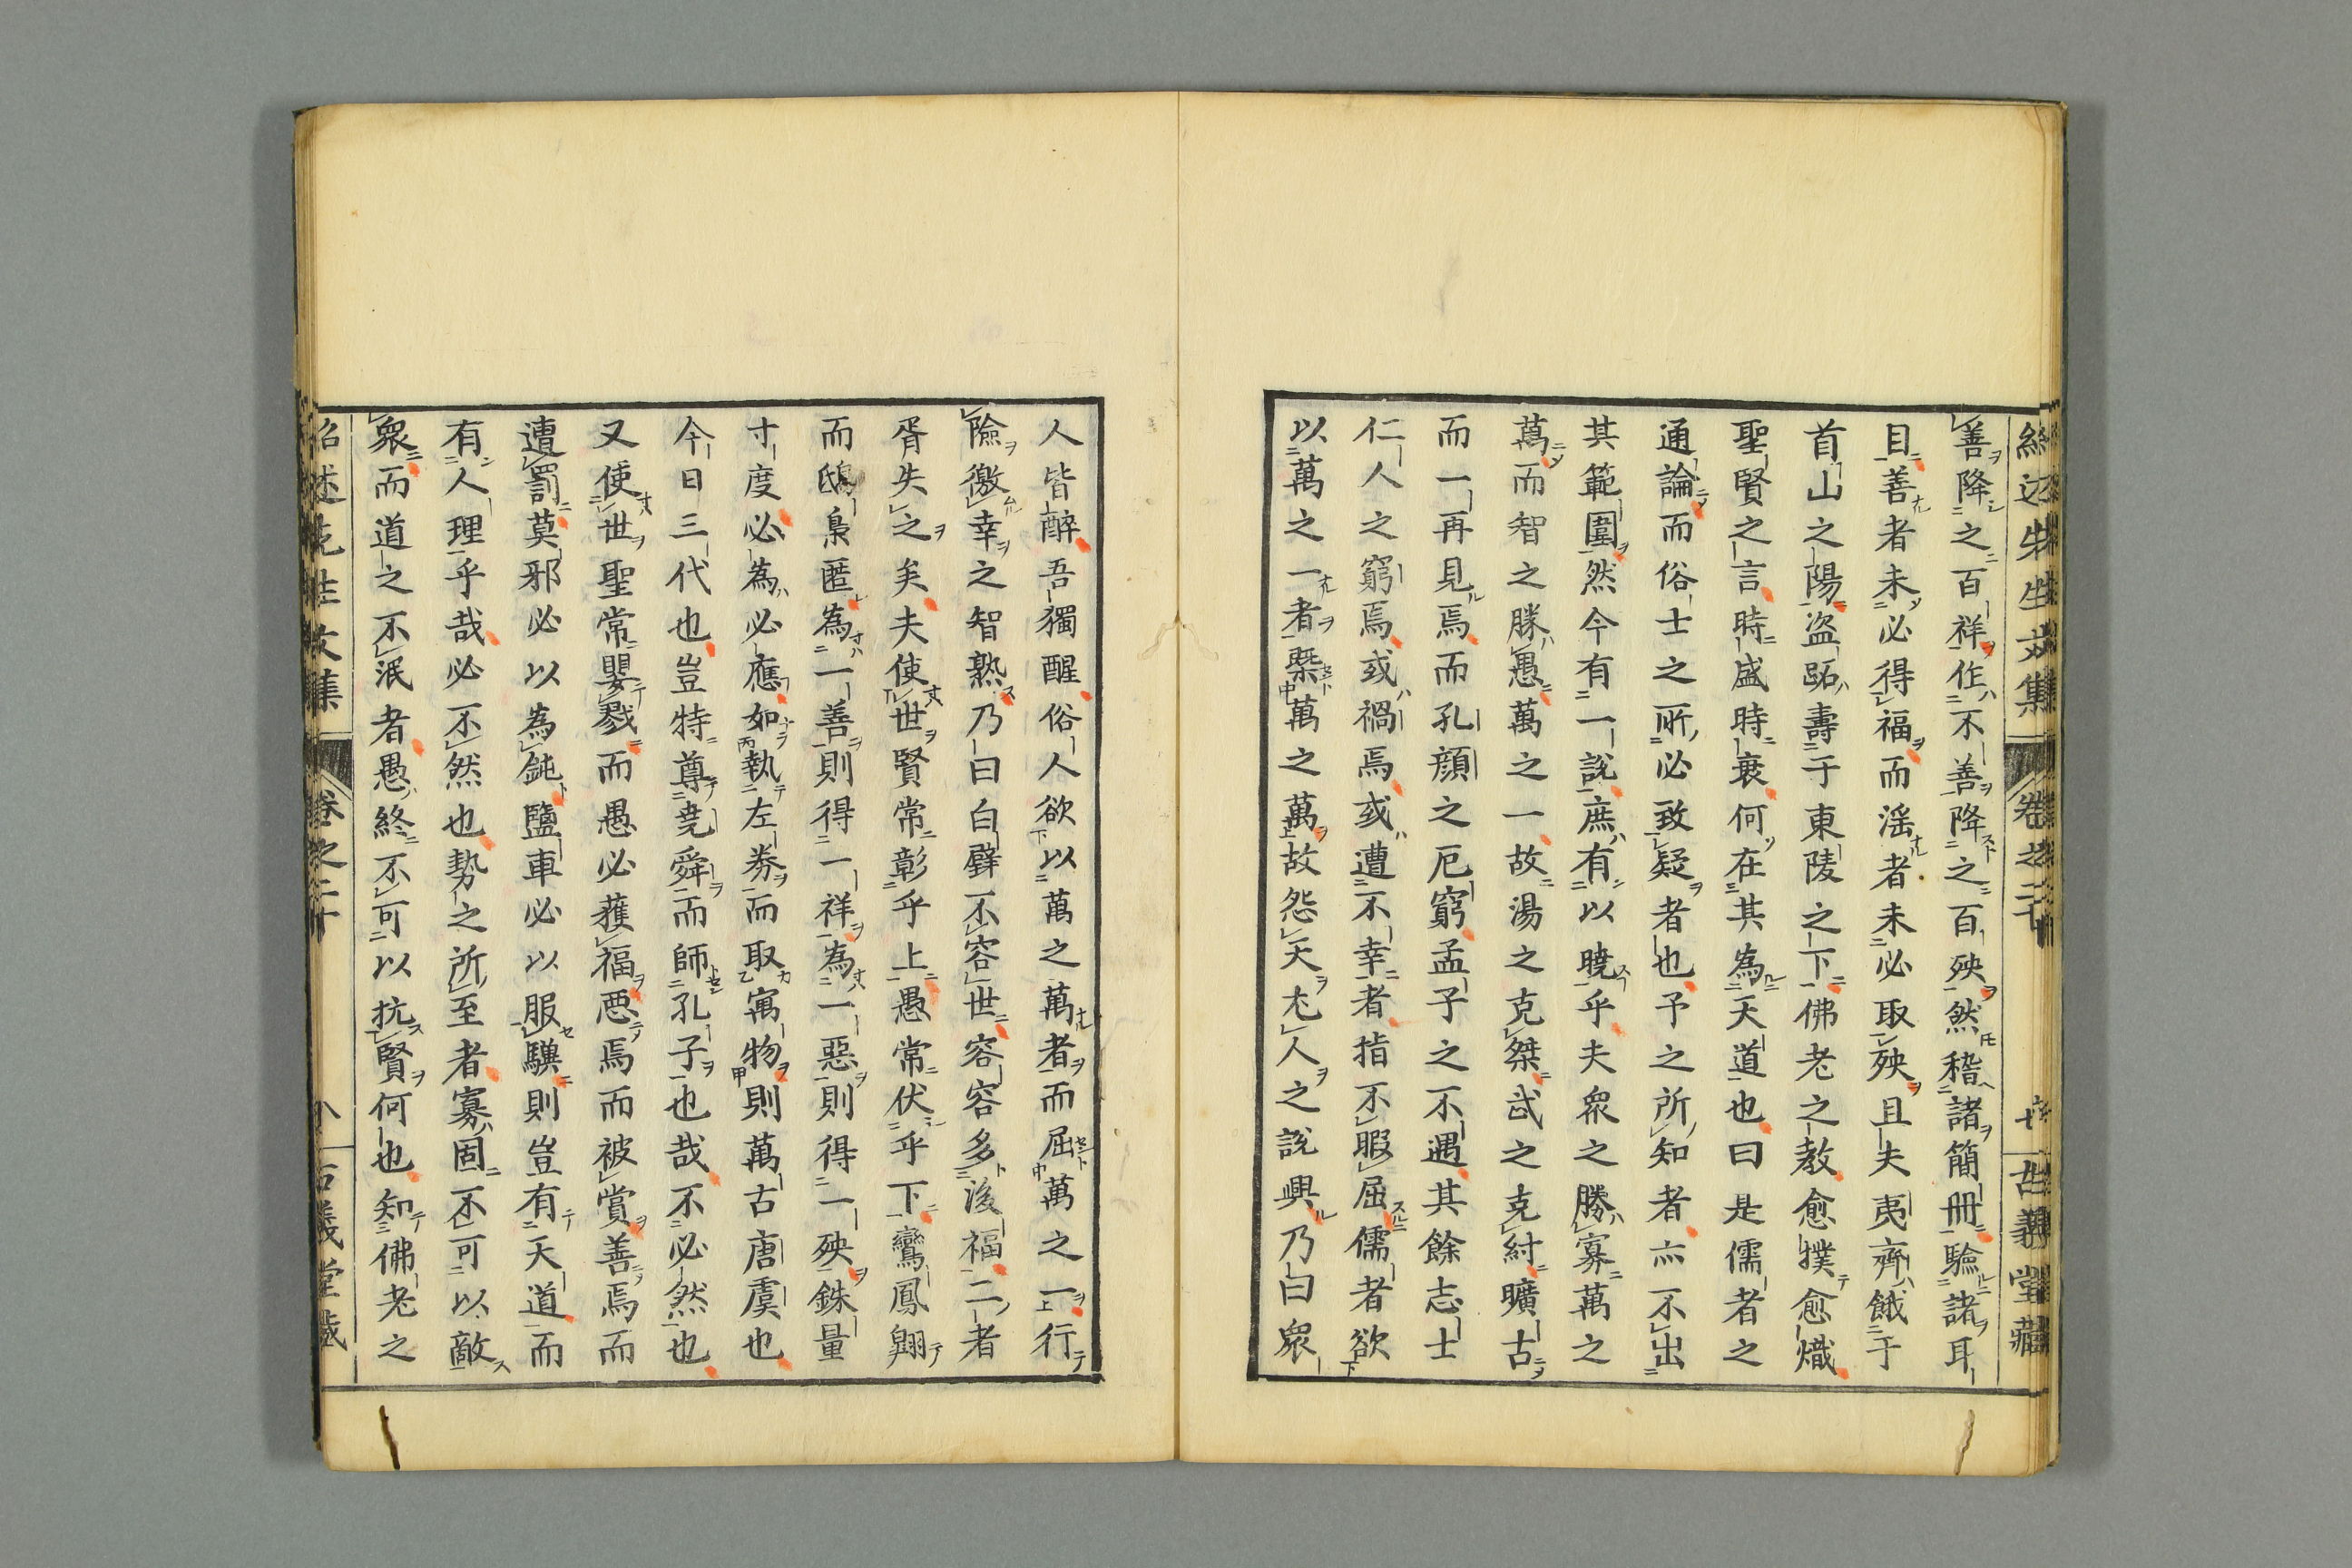 紹述先生文集 卷之二十 七 古義堂藏
善降之百祥作不善降之百殃然稽諸簡冊驗諸耳
目善者未必得福而淫者未必取殃且夫夷齊餓于
首山之陽盗跖壽于東陵之下佛老之教愈撲愈熾
聖賢之言時盛時衰何在其為天道也曰是儒者之
通論而俗士之所必致疑者也予之所知者亦不出
其範圍然今有一說庶有以曉乎夫衆之勝寡萬之
萬而智之勝愚萬之一故湯之克桀武之克紂曠古
而一再見焉而孔顔之厄窮孟子之不遇其餘志士
仁人之窮焉或禍焉或遭不幸者指不暇屈儒者欲
以萬之一者槩萬之萬故怨天尤人之說興乃曰衆
人皆醉吾獨醒俗人欲以萬之萬者而屈萬之一行
險徼幸之智熟乃曰白璧不容世容容多後福二者
胥失之矣夫使世賢常彰乎上愚常伏乎下鸞鳳翺
而鴟梟匿為一善則得一祥為一惡則得一殃銖量
寸度必為必應如執左券而取寓物則萬古唐虞也
今日三代也豈特尊堯舜而師孔子也哉不必然也
又使世聖常嬰戮而愚必獲福惡焉而被賞善焉而
遭罰莫邪必以為鈍鹽車必以服驥則豈有天道而
有人理乎哉必不然也勢之所至者寡固不可以敵
衆而道之不泯者愚終不可以抗賢何也知佛老之
紹述先生文集 卷之二十 八 古義堂藏